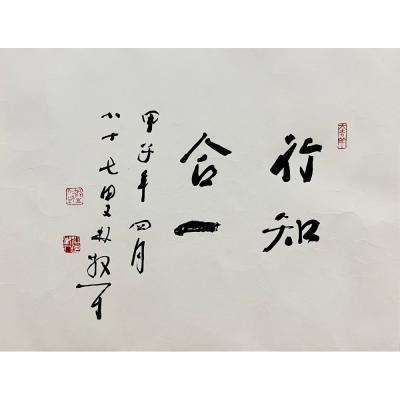 行知
合一
甲子年四月
八十七叟林散耳